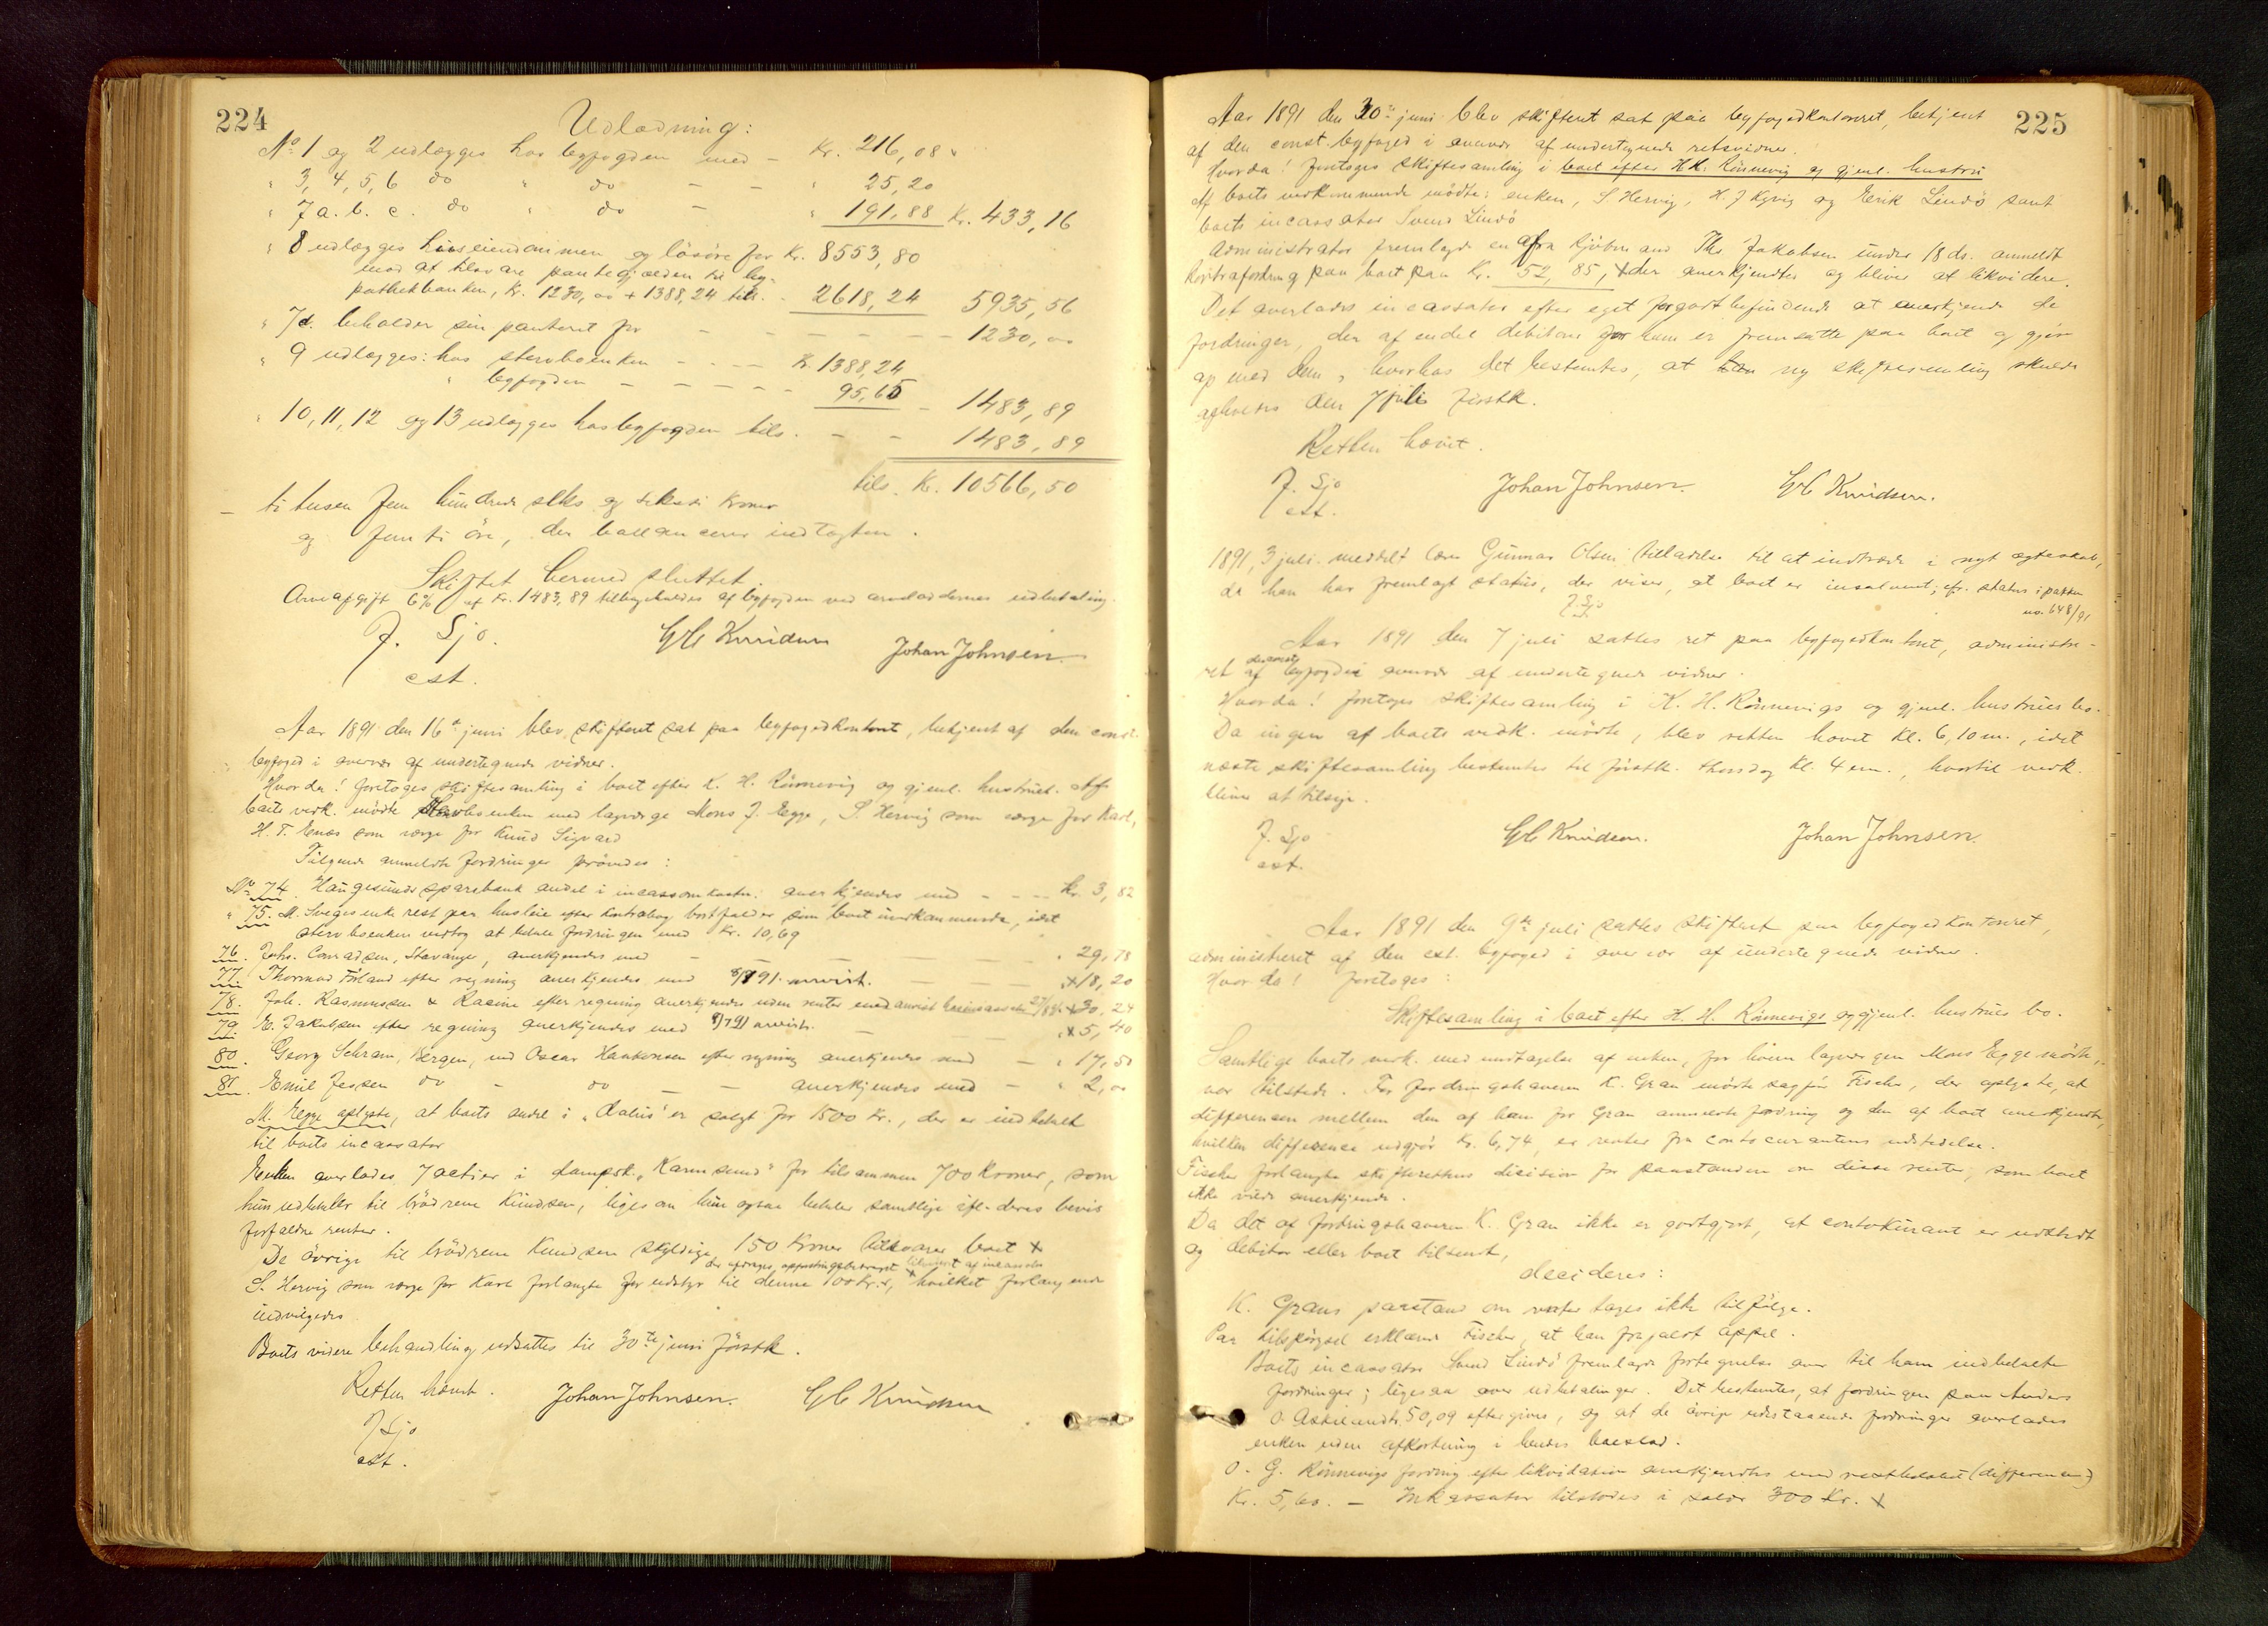 224
Udlodning:
No. 1 og 2 udlægges hos byfogden med - Kr. 216,08
" 3, 4, 5, 6 do " do - - " 25,20
" 7 a. b. c. do " do - " 191,88 Kr. 433,16
" 8 udlægges huseiendommen og lösöre for Kr. 8553,80
mod at tilsvare pantegjælden til hy-
pothekbanken, Kr. 1230,00 + 1388,24 tils. - 2618,24 5935,56
" 7d. beholder sin panteret for - - - - - - 1230,00
" 9 udlægges: hos stervboenken - - - Kr. 1388,24
" byfogden - - - - - 95,65 - 1483,89
" 10, 11, 12 og 13 udlægges hos byfogden tils. - - 1483,89
tils. Kr. 10566,50
- ti tusen fem hundrede seks og seksti kroner
og femti öre, der ballancerer indtægten.
Skiftet hermed sluttet.
Arveafgift 6% af Kr. 1483,89 tilbageholdes af byfogden ved arveloddernes udbetaling.
J. Sjo. G C Knudsen Johan Johnsen
cst.
Aar 1891 den 16de juni blev skifteret sat paa byfogedkontoret, betjent af den const.
byfoged i overvær af undertegnede vidner.
Hvorda! foretoges skiftesamling i boet efter K. H. Rönnevig og gjenl. hustru. Af
boets vedk. mödte stervboenken med lagværge Mons J. Egge, S. Hervig som værge for Karl,
H. T. Enæs som værge for Knud Sigvard
Fölgende anmeldte fordringer prövedes:
No. 74. Haugesunds sparebank andel i incassoomkostn. anerkjendes med - - - kr. 3,82
" 75. M. Sveges enke rest paa husleie efter kontrabog bortfalder som boet uvedkommende, idet
stervboenken vedtog at betale fordringen med Kr. 10,69
76. Johs. Conradsen, Stavanger, anerkjendes med - - - - " 29,78
77. Thormod Förland efter regning anerkjendes med 8/7 91. anvist. - - - "+18,20
78. Joh. Rasmussen & Racine efter regning anerkjendes uden renter med +30,24
79. E. Jakobsen efter regning anerkjendes med 8/7 91 anvist. - "+5,40
80. Georg Schram, Bergen, ved Oscar Haakonsen efter regning anerkjendes med - " 17,50
81. Emil Jessen do - do - - anerkjendes med - " 2,00
M. Egge oplyste, at boets andel i "Dalus" er solgt for 1500 Kr., der er indbetalt
til boets incassator
Enken overlodes 7 actier i dampsk. "Karmsund" for tilsammen 700 kroner, som
hun udbetaler til brödrene Knudsen, ligesom hun ogsaa betaler samtlige ifl. deres bevis
forfaldne renter.
De övrige til brödrene Knudsen skyldige 150 kroner tilsvarer boet +
S. Hervig som værge for Karl forlangte for udstyr til denne 100 Kr. +, hvilket forlangende
indvilgedes
Boets videre behandling udsattes til 30te juni förstk.
Retten hævet. Johan Johnsen. G C Knudsen
J Sjo
cst.
225
Aar 1891 den 30te juni blev skifteret sat paa byfogedkontoret, betjent
af den const. byfoged i overvær af undertegnede retsvidner.
Hvorda! foretoges skiftesamling i boet efter K H. Rönnevig og gjenl. hustru
Af boets vedkommende mödte: enken, S. Hervig, H. J Kyvig og Erik Lindö samt
boets incassator Svend Lindö
Administrator fremlagde en fra kjöbmand Ths Jakobsen under 18 ds. anmeldt
kontrafordring paa boet paa Kr. 52,85, + der anerkjendtes og bliver at likvidere.
Det overlodes incassator efter eget forgodtbefindende at anerkjende de
fordringer, der af endel debitorer for ham er fremsatte paa boet og gjör
op med dem, hvorhos det bestemtes, at ny skiftesamling skulde
afholdes den 7 juli förstk.
Retten hævet.
J. Sjo Johan Johnsen. G C Knudsen.
cst.
1891, 3 juli. meddelt Gunnar Olsen tilladelse til at indtræde i nyt ægteskab,
da han har fremlagt status, der viser, at boet er insolvent; cfr. status i pakke
J. Sjo no. 648/91
Aar 1891 den 7 juli sattes ret paa byfogedkontoret, administre-
ret af den const. byfoged i overvær af undertegnede vidner.
Hvorda! foretoges skiftesamling i K. H. Rönnevigs og gjenl. hustrues bo.
Da ingen af boets vedk. mödte, blev retten hævet Kl. 6,10 em., idet
næste skiftesamling bestemtes til förstk. thorsdag kl. 4 em., hvortil vedk.
bliver at tilsige.
J. Sjo G C Knudsen. Johan Johnsen.
cst.
Aar 1891 den 9de juli sattes skifteret paa byfogedkontoret,
administreret af den cst. byfoged i overvær af undertegnede vidner.
Hvorda! foretoges:
Skiftesamling i boet efter K. H. Rönnevigs og gjenl. hustrues bo.
Samtlige boets vedk. med undtagelse af enken, for hvem lagværgen Mons Egge mödte,
var tilstede. For fordringshaveren K. Gran mödte sagför. Fischer, der oplyste, at
differensen mellem den af ham for Gran anmeldte fordring og den af boet anerkjendte,
hvilken difference udgjör Kr. 6,74, er renter fra contocurantens udstedelse.
Fischer forlangte skifterettens decision for paastanden om disse renter, som boet
ikke vilde anerkjende.
Da det af fordringshaveren K. Gran ikke er godtgjort, at contokurant er udstedt
og debitor eller boet tilsendt,
decideres:
K. Grans paastand om renter tages ikke tilfölge.
Paa tilspörgsel erklærede Fischer, at han forfaldt appel.
Boets incassator Svend Lindö fremlagde fortegnelse over til ham indbetalte
fordringer; ligesaa over udbetalinger. Det bestemtes, at fordringen paa Anders
O. Askeland Kr. 50,09 eftergives, og at de övrige udestaaende fordringer overlades
enken uden afkortning i hendes boeslod.
O. G. Rönnevigs fordring efter likvidation anerkjendtes med restbelöbet (differensen)
Kr. 5,60. - Inkassator tilstodes i salær 300 Kr. +